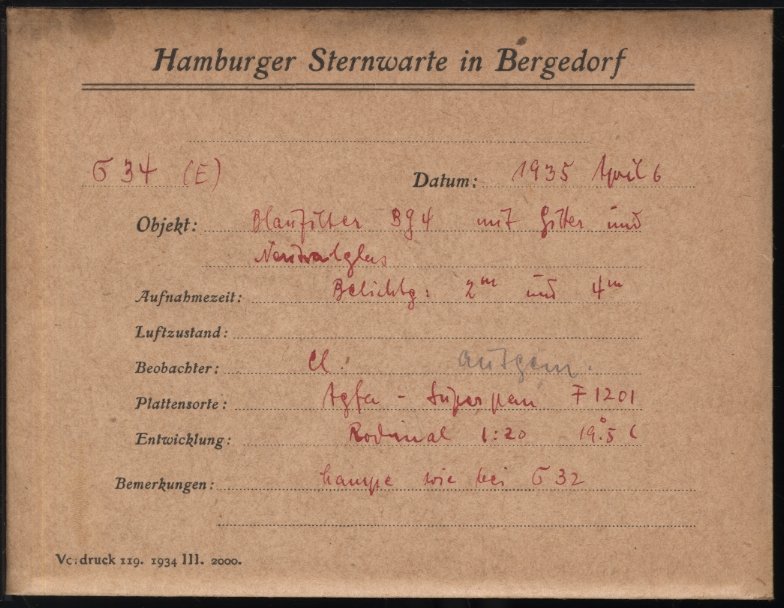 Hamburger Sternwarte in Bergedorf
G 34 (E) Datum: 1935 April 6
Objekt: Blaufilter BG4 mit Gitter und
Neutralglas
Aufnahmezeit: Belichtg: 2m und 4m
Luftzustand:
Beobachter: Cl.
Plattensorte: Agfa - Superpan F 1201
Entwicklung: Rodinal 1:20 19.°5 C
Bemerkungen: Lampe wie bei G 32
Vordruck 119. 1934 III. 2000.